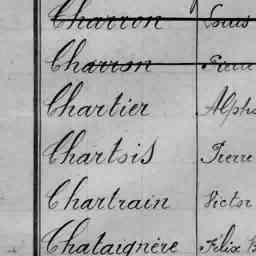 Charron Louis
Charron
Chartier Alpho
Chartois Pierre
Chartrain Victor
Chataignère Félix